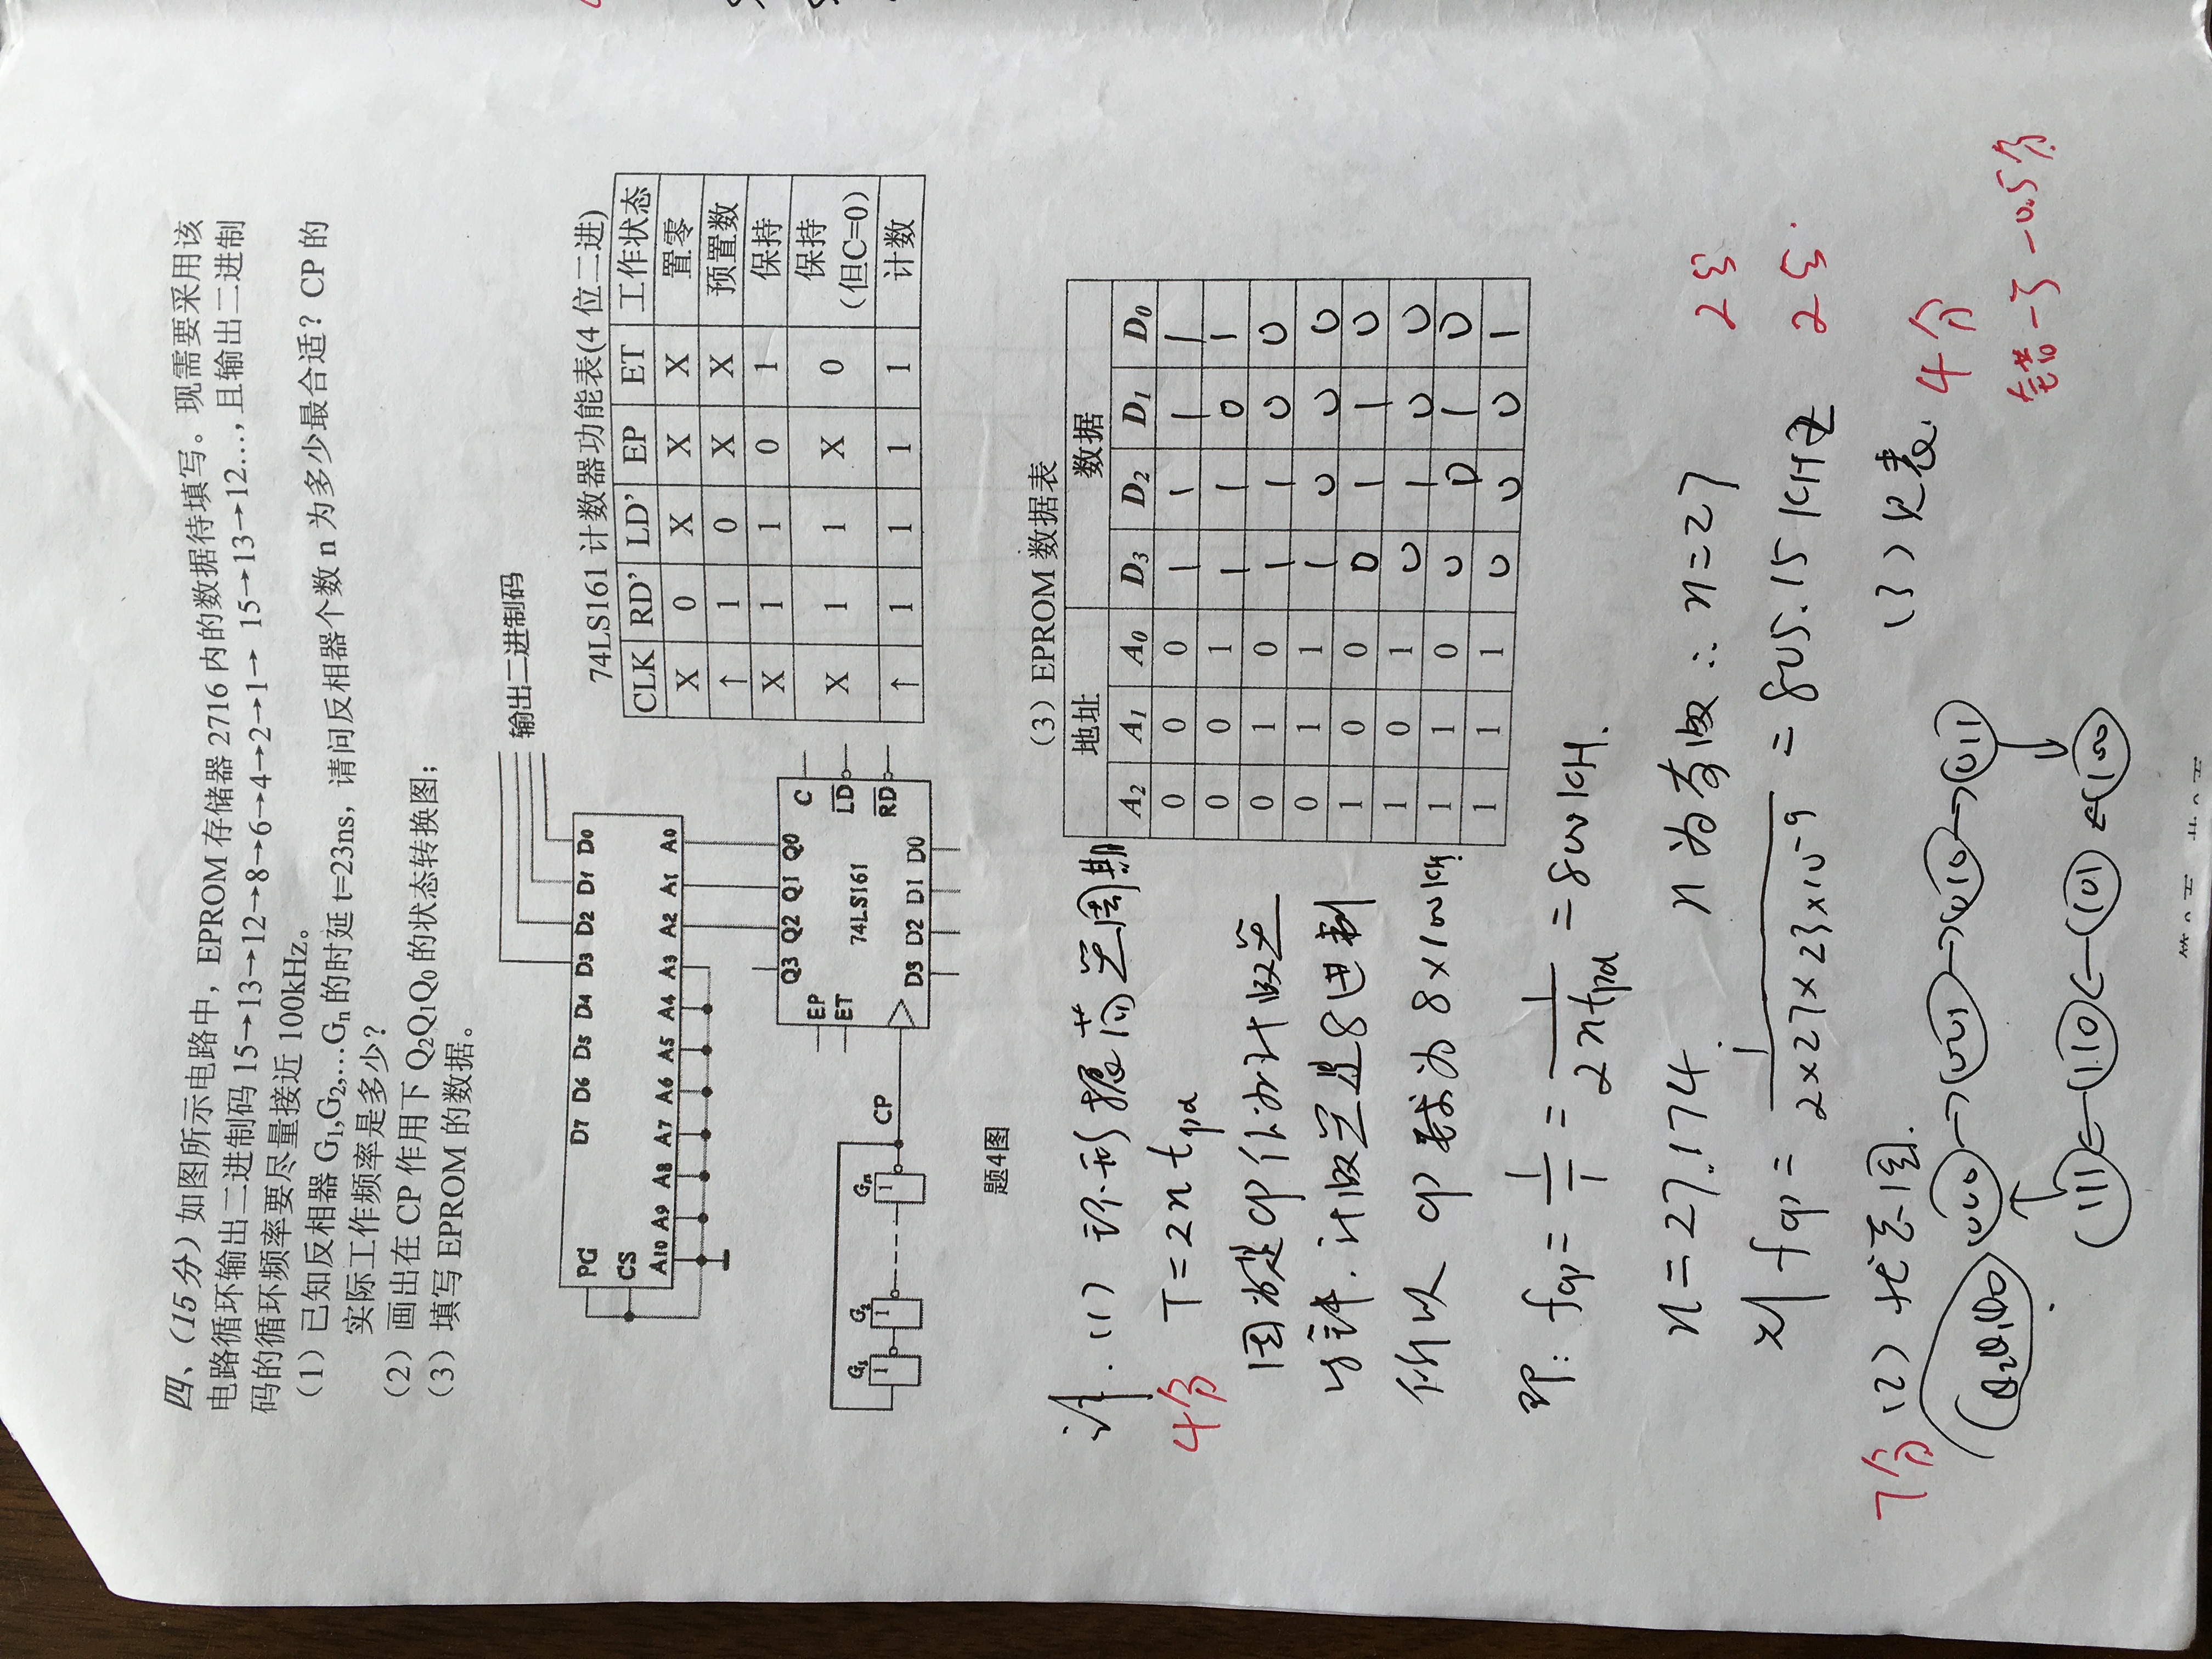 四、（15分）如图所示电路中，EPROM 存储器 2716 内的数据待填写。现需要采用该
电路循环输出二进制码 15→13→12→8→6→4→2→1→ 15→13→12…，且输出二进制
码的循环频率要尽量接近 100kHz。
（1）已知反相器 G1,G2,…Gn 的时延 t=23ns，请问反相器个数 n 为多少最合适？CP 的
实际工作频率是多少？
（2）画出在 CP 作用下 Q2Q1Q0 的状态转换图；
（3）填写 EPROM 的数据。
输出二进制码
PG D7 D6 D5 D4 D3 D2 D1 D0
CS
A10 A9 A8 A7 A6 A5 A4 A3 A2 A1 A0
74LS161 计数器功能表(4 位二进)
CLK RD’ LD’ EP ET 工作状态
X 0 X X X 置零
↑ 1 0 X X 预置数
X 1 1 0 1 保持
X 1 1 X 0 保持
（但C=0）
↑ 1 1 1 1 计数
Q3 Q2 Q1 Q0 C
EP
ET 74LS161 LD
RD
D3 D2 D1 D0
G1 G2 Gn
1 1 1
CP
题4图
（3）EPROM 数据表
地址 数据
A2 A1 A0 D3 D2 D1 D0
0 0 0 1 1 1 1
0 0 1 1 1 0 1
0 1 0 1 1 0 0
0 1 1 1 0 0 0
1 0 0 0 1 1 0
1 0 1 0 1 0 0
1 1 0 0 0 1 0
1 1 1 0 0 0 1
（1）环形振荡器周期
4分 T=2n tpd
因为是CP作为计数器
时钟．计数器是8进制
所以 CP 为 8×100KH
即: fcp = 1/T = 1/2ntpd = 800KH.
n=27.174. n为奇数 ∴ n=27 2分
则 fcp = 1/2×27×23×10-9 = 805.15KHZ 2分
7分 (2) 状态图.
(3) 见表.
4分
错一个-0.5分
Q2Q1Q0 000 → 001 → 010 → 011
111 ← 110 ← 101 ← 100